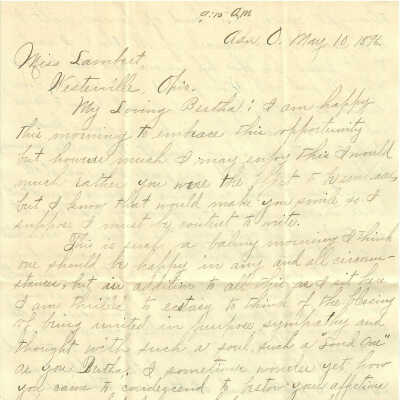 9:10 AM
Ada, O. May, 10, 1896
Miss Lambert,
Westerville, Ohio.
My Loving Bertha: I am happy
this morning to embrace this opportunity
but however much I may enjoy this I would
much rather you were the
but I know that would make you smile so I
suppose I must be content to write.
This is such a balmy morning I think
one should be happy in any and all circum-
stances, but in addition to all this as I sit here
I am thrilled to ecstasy to think of the blessing
of being united in purpose sympathy and
thought with such a soul, such a "Loved One"
as you Bertha. I sometimes wonder yet how
you came to condescend to bestow your affections